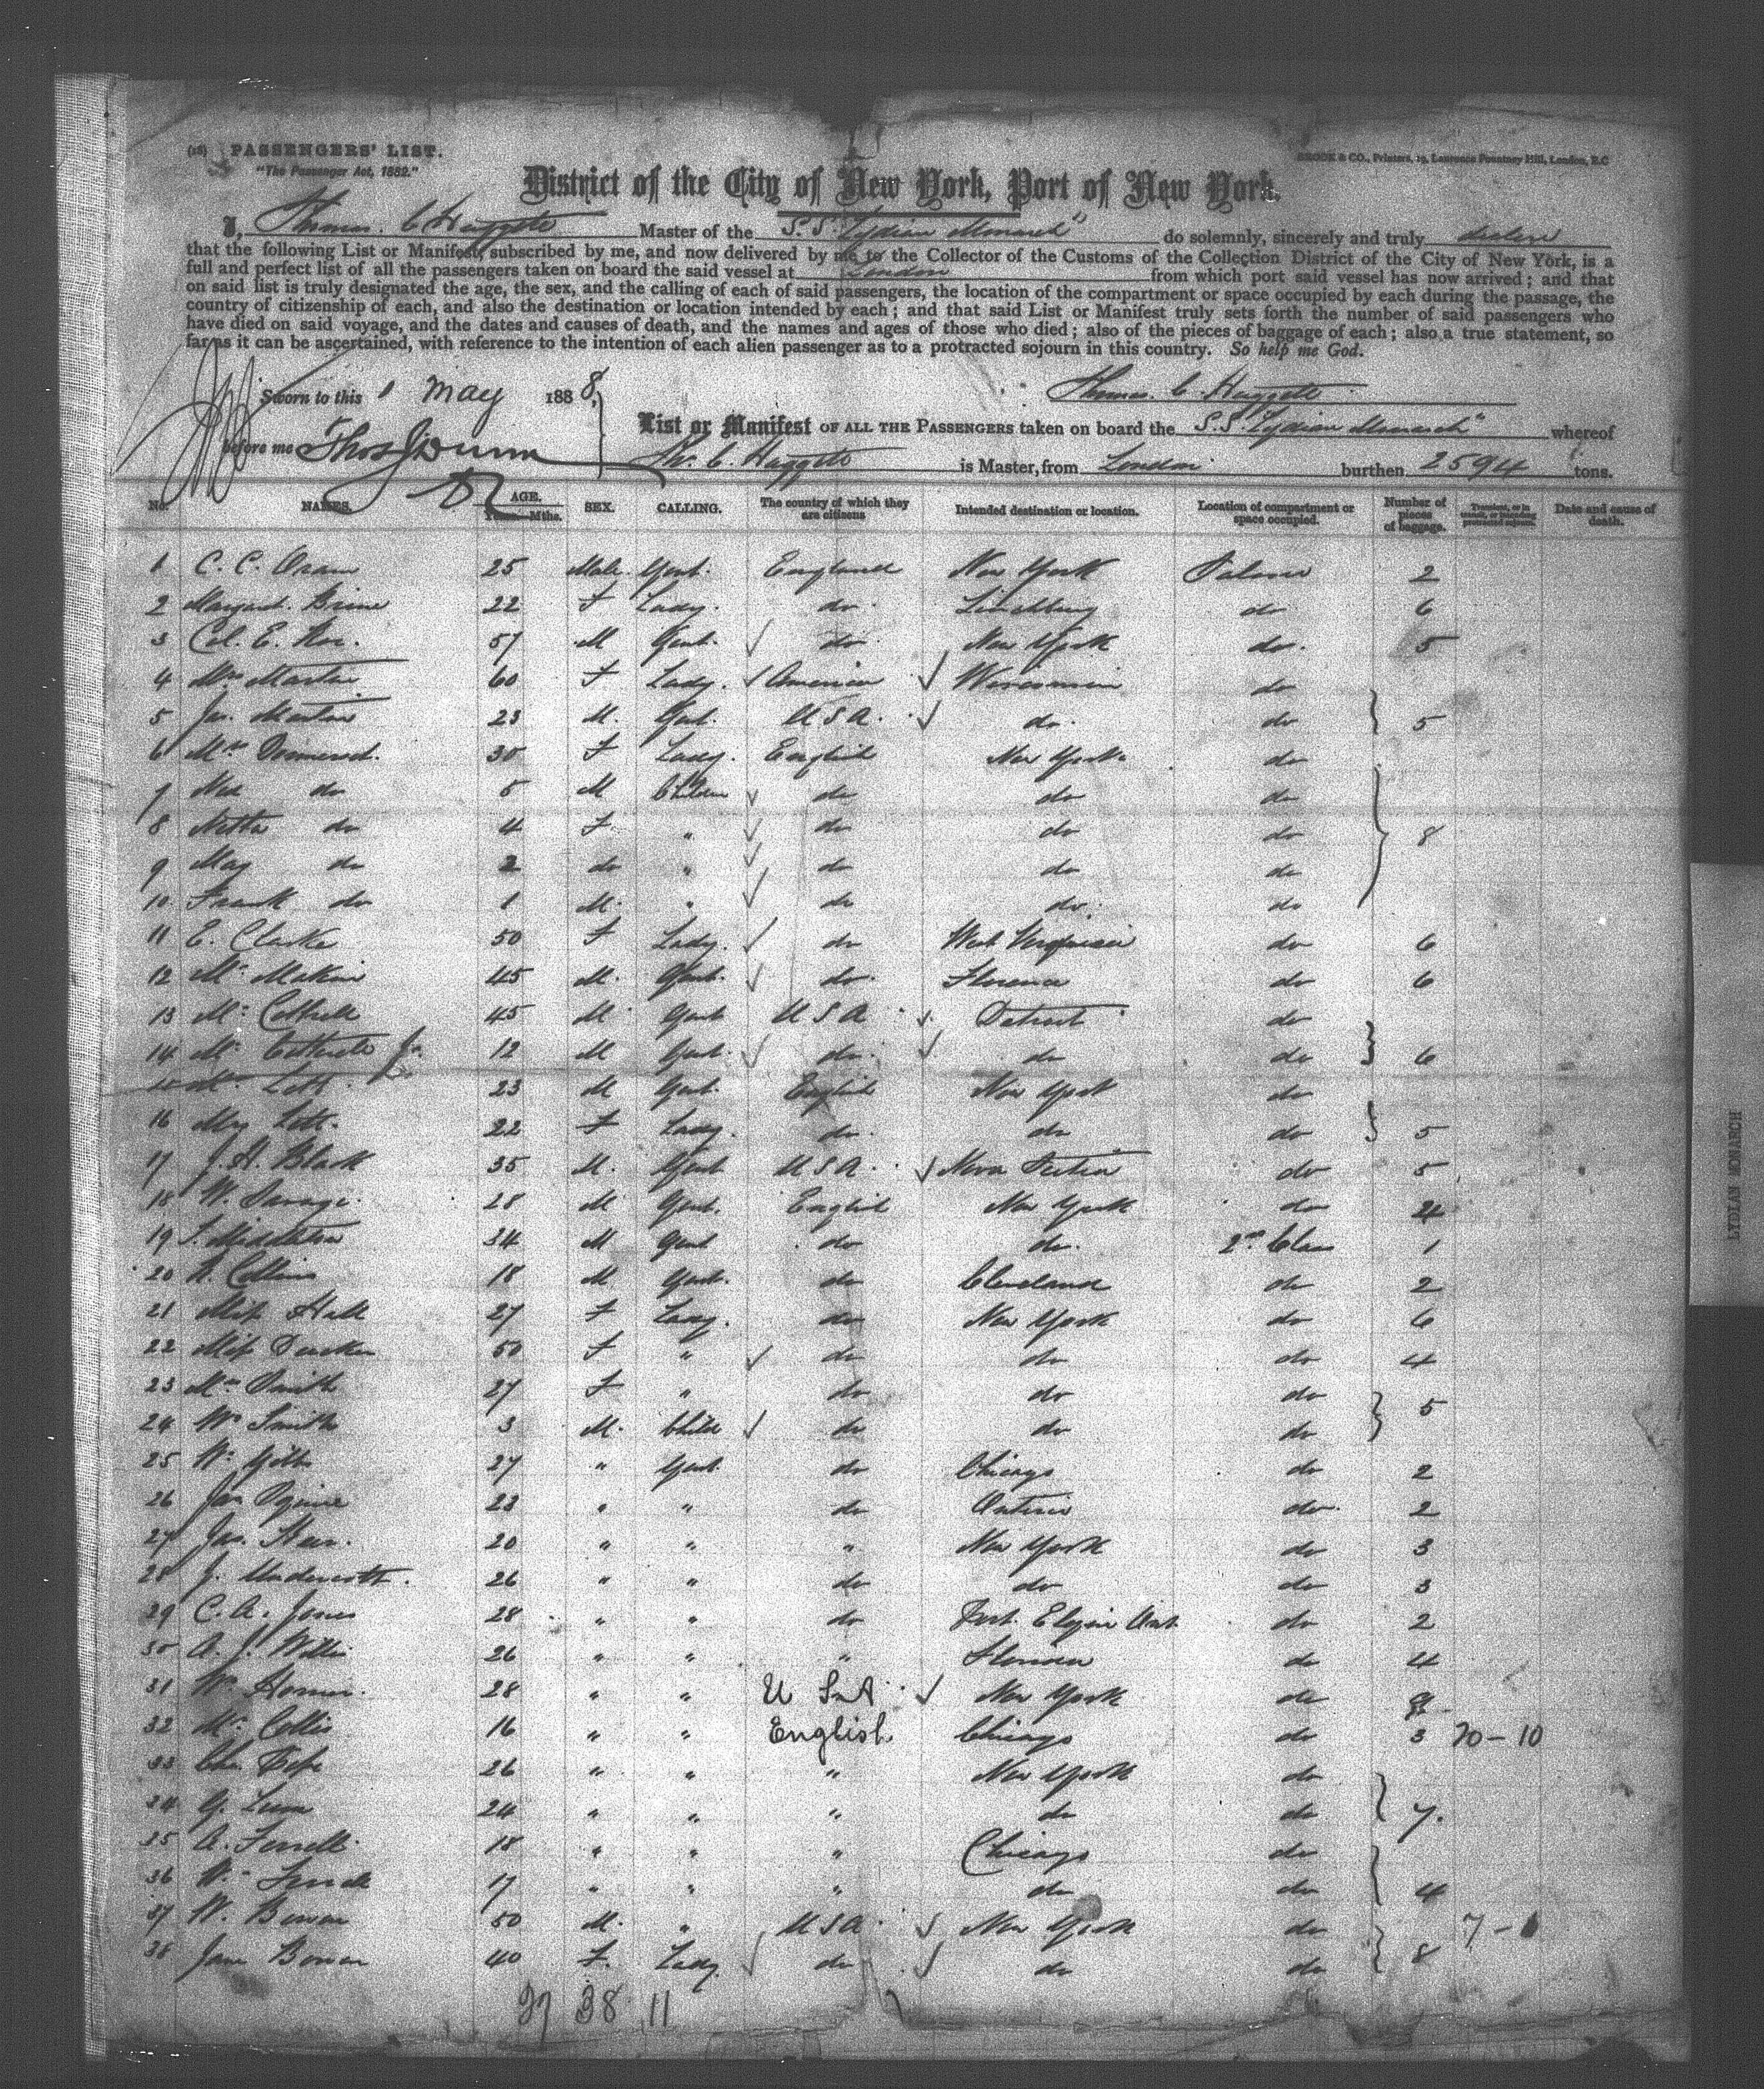 (18) PASSENGERS' LIST.
"The Passenger Act, 1882."
BROOK & CO., Printers, 19, Laurence Pountney Hill, London, E.C
District of the City of New York, Port of New York.
I, Thomas C Huggett Master of the S.S. "Lydian Monarch" do solemnly, sincerely and truly declare
that the following List or Manifest, subscribed by me, and now delivered by me to the Collector of the Customs of the Collection District of the City of New York, is a
full and perfect list of all the passengers taken on board the said vessel at London from which port said vessel has now arrived; and that
on said list is truly designated the age, the sex, and the calling of each of said passengers, the location of the compartment or space occupied by each during the passage, the
country of citizenship of each, and also the destination or location intended by each; and that said List or Manifest truly sets forth the number of said passengers who
have died on said voyage, and the dates and causes of death, and the names and ages of those who died; also of the pieces of baggage of each; also a true statement, so
far as it can be ascertained, with reference to the intention of each alien passenger as to a protracted sojourn in this country. So help me God.
Sworn to this 1 May 1888, Thomas. C. Huggett
before me Thos J Dunn
List or Manifest OF ALL THE PASSENGERS taken on board the S.S. "Lydian Monarch" whereof
Th. C. Huggett is Master, from London burthen 2594 tons.
No. NAMES. AGE. Years. Mths. SEX. CALLING. The country of which they are citizens Intended destination or location. Location of compartment or space occupied. Number of pieces of baggage. Transient, or in transit, or intending protracted sojourn. Date and cause of death.
1 C. C. Oram 25 Male Gent. England New York Saloon 2
2 Margaret 22 F Lady. do. do 6
3 Col. E. 57 M Gent. do. New York do. 5
4 Mrs Martin 60 F Lady. America Wisconsin do
5 Martin 23 M. Gent. U S A. do. do 5
6 Mrs 30 F Lady. English New York. do
7 do 5 M Children do do do
8 Netta do 4 F " do do do 8
9 May do 2 do " do do do
10 Frank do 1 M. " do do. do
11 E. Clarke 50 F Lady. do West Virginia do 6
12 Mr 45 M. Gent. do. do 6
13 Mr Cottrell 45 M. Gent U S A. Detroit do
14 Mr Cottrell Jr. 12 M Gent. do. do do 6
15 Mr Lott. 23 M Gent. English New York do
16 Lott. 22 F Lady. do. do do 5
17 J. H. Black 35 M. Gent U S A. Nova Scotia do 5
18 W. Savage. 28 M Gent. English New York do
19 Middleton 34 M Gent do do. 2nd Class 1
20 Collins 18 M Gent. do Cleveland do 2
21 Miss Hall 27 F Lady. do New York do 6
22 Miss 50 F " do do do 4
23 Mrs Smith 27 F " do do do
24 Wm Smith 3 M. Child do do do 5
25 27 " Gent. do Chicago do 2
26 23 " " do Ontario do. 2
27 20 " " " New York do 3
28 J. 26 " " do do do 3
29 C. A. Jones 28 " " do Port. Elgin Ont. do 2
30 A. J. Willis 26 " " " do 4
31 28 " " U S A. New York do
32 Mr. Collis 16 " " English Chicago do 3 70-10
33 26 " " " New York do
34 24 " " " do do 7.
35 A. 18 " " " Chicago do
36 17 " " " do do 4
37 W. Bowen 50 M. " U S A. New York do
38 Jane Bowen 40 F. Lady. do do do 8
37 38 11
LYDIAN MONARCH